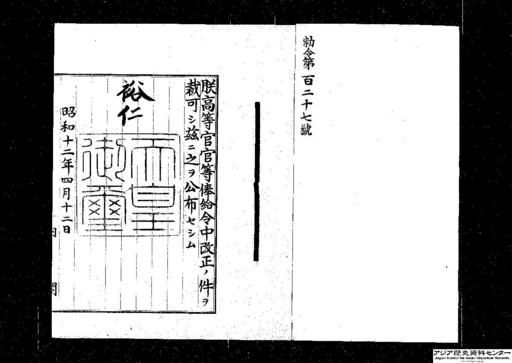 勅令第百二十七號
朕高等官官等俸給令中改正ノ件ヲ
裁可シ茲ニ之ヲ公布セシム
裕仁
天皇
御璽
昭和十二年四月十二日
内閣
アジア歴史資料センター
Japan Center for Asian Historical Records